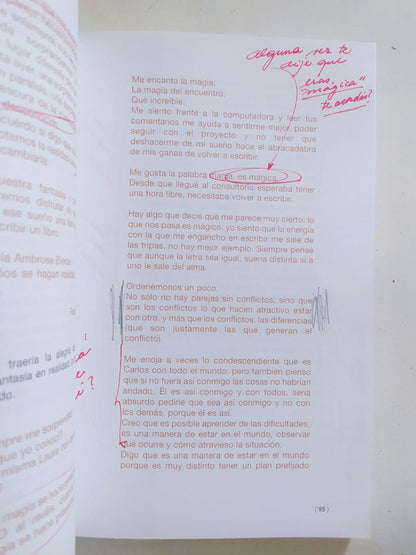 alguna vez te
dije que
eras "mágica"
te acordás?
Me encanta la magia.
La magia del encuentro.
Qué increíble.
Me siento frente a la computadora y leer tus
comentarios me ayuda a sentirme mejor, poder
seguir con el proyecto y no tener que
deshacerme de mi sueño hace el abracadabra
de mis ganas de volver a escribir.
Me gusta la palabra magia, es mágica.
Desde que llegué al consultorio esperaba tener
una hora libre, necesitaba volver a escribir.
Hay algo que decís que me parece muy cierto: lo
que nos pasa es mágico, yo siento que la energía
con la que me engancho en escribir me sale de
las tripas, no hay mejor ejemplo. Siempre pensé
que aunque la letra sea igual, suena distinta si a
uno le sale del alma.
Ordenémonos un poco.
No sólo no hay parejas sin conflictos, sino que
son los conflictos lo que hacen atractivo estar
con otro, y más que los conflictos, las diferencias
(que son justamente las que generan el
conflicto).
Me enoja a veces lo condescendiente que es
Carlos con todo el mundo, pero también pienso
que si no fuera así conmigo las cosas no habrían
andado. Él es así conmigo y con todos, sería
absurdo pedirle que sea así conmigo y no con
los demás, porque él es así.
Creo que es posible aprender de las dificultades,
es una manera de estar en el mundo, observar
qué ocurre y cómo atravieso la situación.
Digo que es una manera de estar en el mundo
porque es muy distinto tener un plan prefijado
(95)
lugar diferente
cuerdo si digo que
cambiarla.
uestra fantasía
remos disfrutar
ese sueño una
cribir un libro.
ía Ambrose Bierce
ños se hagan realidad
traería la alegría
antasía en realidad
do.
mpre me sorprendía
que yo conocí?
misma Laura con
magia se hace
O al revés,
magia se hace